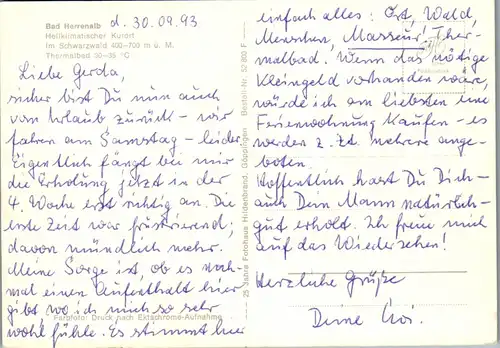 Bad Herrenalb
d. 30.09.93
Heilklimatischer Kurort
im Schwarzwald 400-700 m ü. M.
Thermalbad 30-35 °C
Liebe Gerda,
sicher bist Du nun auch
von Urlaub zurück - wir
fahren am Samstag - leider
Eigentlich fängt bei mir
die Erholung jetzt in der
4. Woche erst richtig an. Die
erste Zeit war frustrierend;
davon mündlich mehr.
Meine Sorge ist, ob es noch-
mal einen Aufenthalt hier
gibt wo ich mich so sehr
wohl fühle. Es stimmt hier
Farbfoto: Druck nach Ektachrome-Aufnahme
25 Jahre Fotohaus Hildenbrand, Göppingen Bestell-Nr. 52 803 F
einfach alles: Ort, Wald,
Menschen, Masseur, Ther-
malbad. Wenn das nötige
Kleingeld vorhanden wäre,
würde ich am liebsten eine
Ferienwohnung kaufen - es
werden z. Zt. mehrere ange-
boten.
Hoffentlich hast Du Dich -
auch Dein Mann natürlich -
gut erholt. Ich freue mich
auf das Wiedersehen!
Herzliche Grüße
Deine